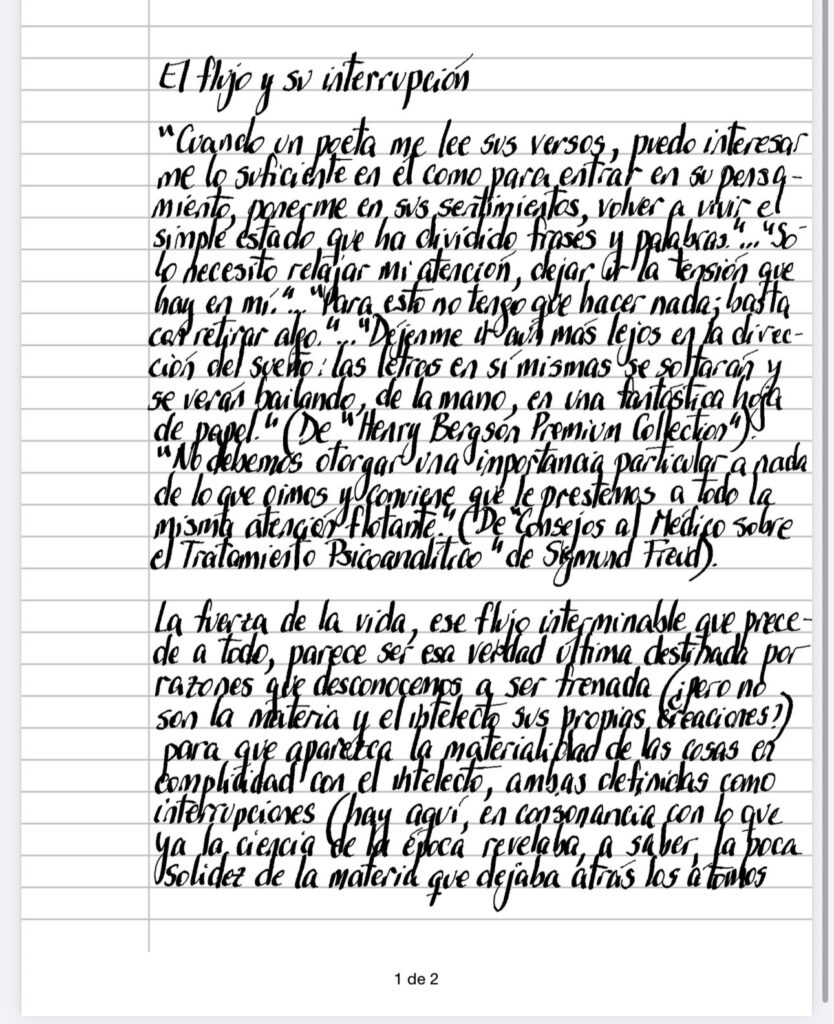 El flujo y su interrupción
"Cuando un poeta me lee sus versos, puedo interesar
me lo suficiente en él como para entrar en su pensa-
miento, ponerme en sus sentimientos, volver a vivir el
simple estado que ha dividido frases y palabras."..."Só
lo necesito relajar mi atención, dejar ir la tensión que
hay en mí."..."Para esto no tengo que hacer nada; basta
con retirar algo."..."Déjenme ir aún más lejos en la direc-
ción del sueño: las letras en sí mismas se soltarán y
se verán bailando, de la mano, en una fantástica hoja
de papel." (De "Henry Bergson Premium Collection").
"No debemos otorgar una importancia particular a nada
de lo que oímos y conviene que le prestemos a todo la
misma atención flotante." (De "Consejos al Médico sobre
el Tratamiento Psicoanalítico" de Sigmund Freud).
La fuerza de la vida, ese flujo interminable que prece-
de a todo, parece ser esa verdad última destinada por
razones que desconocemos a ser frenada (¿pero no
son la materia y el intelecto sus propias creaciones?)
para que aparezca la materialidad de las cosas en
complicidad con el intelecto, ambas definidas como
interrupciones (hay aquí, en consonancia con lo que
ya la ciencia de la época revelaba, a saber, la poca
solidez de la materia que dejaba atrás los átomos
1 de 2